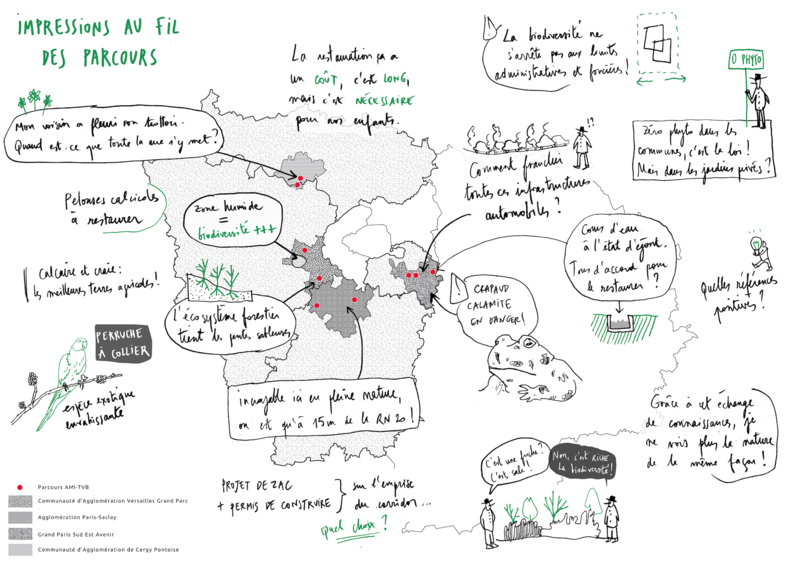 IMPRESSIONS AU FIL
DES PARCOURS
La restauration ça a
un COÛT, c'est LONG,
mais c'est NÉCESSAIRE
pour nos enfants.
La biodiversité ne
s'arrête pas aux limites
administratives et foncières !
0 PHYTO
Zéro phyto dans les
communs, c'est la loi !
Mais dans les jardins privés ?
Mon voisin a fleuri son trottoir.
Quand est-ce que toute la rue s'y met ?
!?
Comment franchir
toutes ces infrastructures
automobiles ?
Pelouses calcicoles
à restaurer
zone humide
=
biodiversité +++
Cours d'eau
à l'état d'égout.
Tous d'accord pour
le restaurer ?
Calcaire et craie :
les meilleures terres agricoles !
CRAPAUD
CALAMITE
EN DANGER !
Quelles références
positives ?
L'écosystème forestier
tient les pentes sableuses
PERRUCHE
À COLLIER
espèce exotique
envahissante
incroyable ici en pleine nature,
on est qu'à 15 m de la RN 20 !
Grâce à cet échange
de connaissances, je
ne vois plus la nature
de la même façon !
C'est une friche ?
C'est sale !
Non, c'est RICHE
la biodiversité !
PROJET DE ZAC
+ PERMIS DE CONSTRUIRE
sur l'emprise
du corridor...
quel choix ?
Parcours AMI-TVB
Communauté d'Agglomération Versailles Grand Parc
Agglomération Paris-Saclay
Grand Paris Sud Est Avenir
Communauté d'Agglomération de Cergy Pontoise